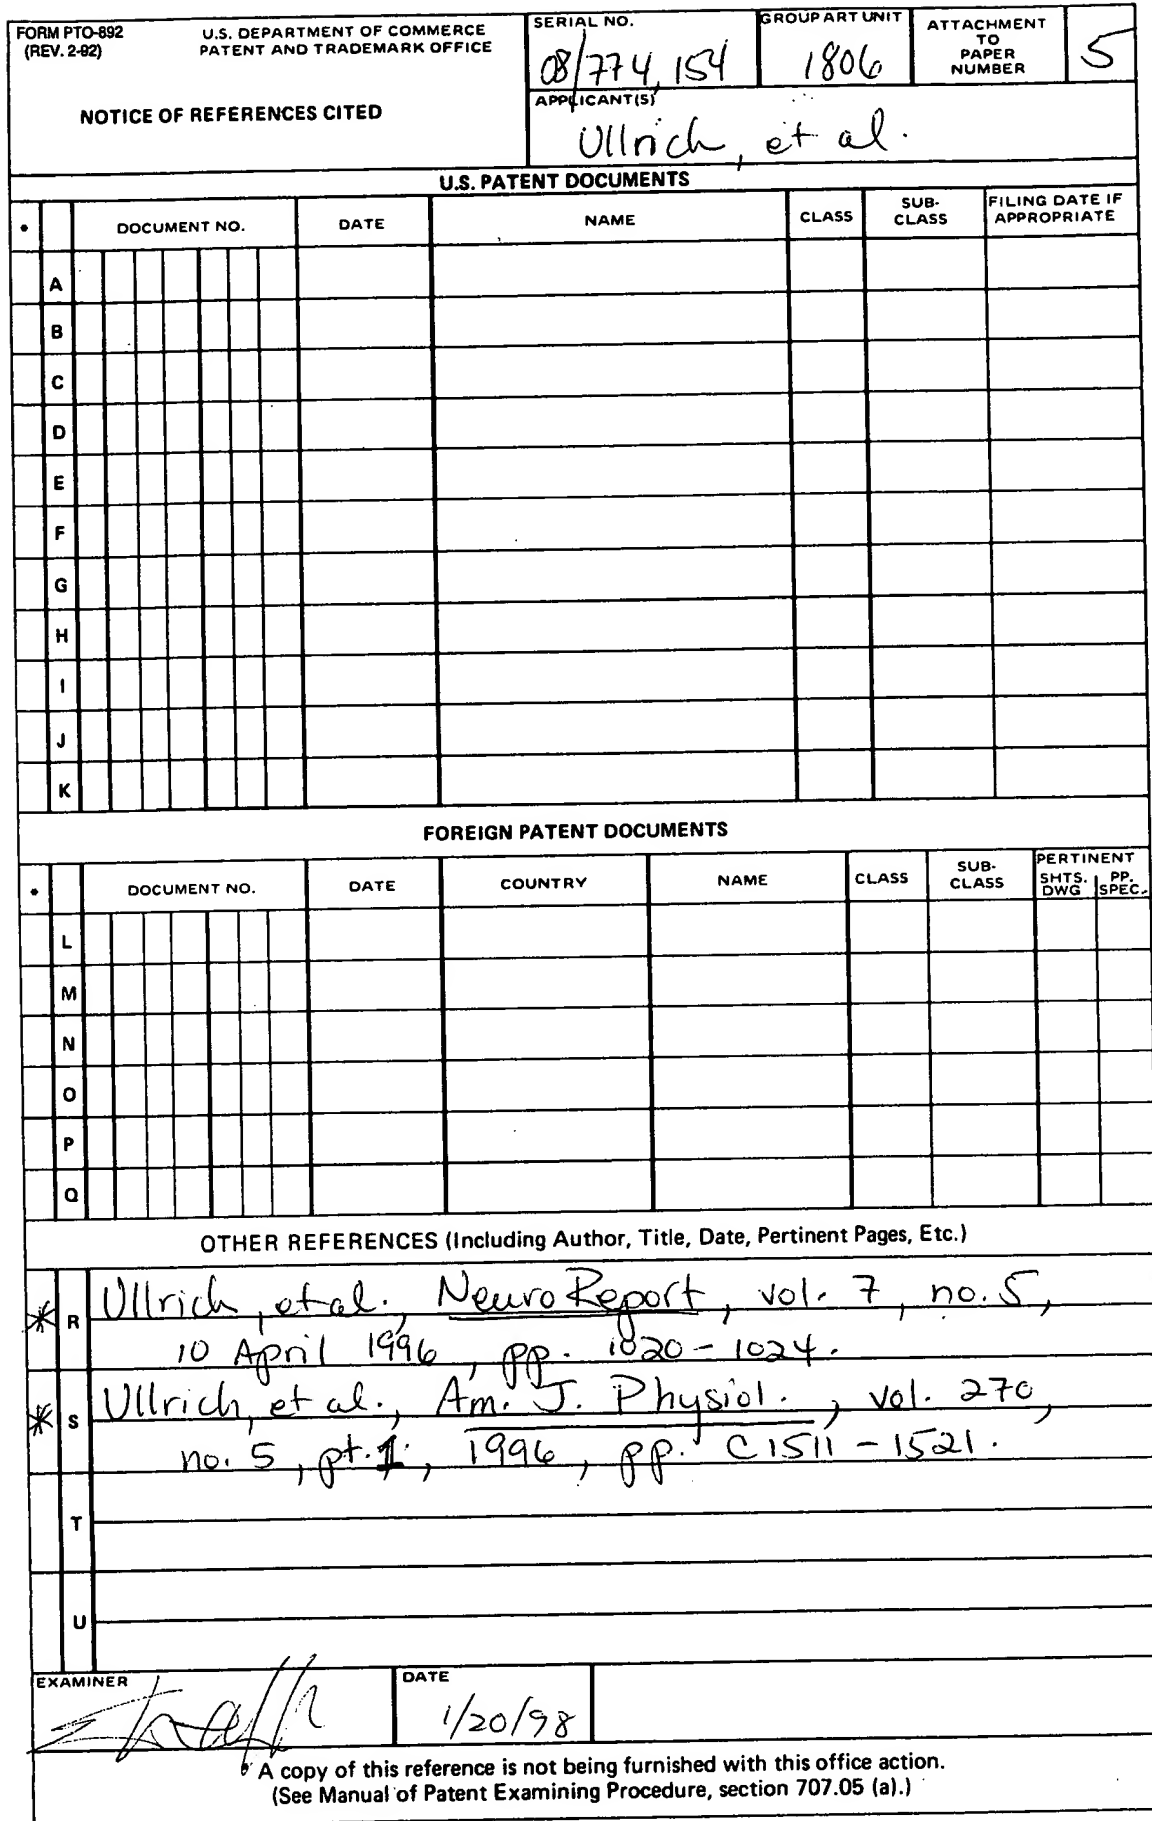 FORM PTO-892
(REV. 2-92)
U.S. DEPARTMENT OF COMMERCE
PATENT AND TRADEMARK OFFICE
NOTICE OF REFERENCES CITED
SERIAL NO.
08/774,154
GROUP ART UNIT
1806
ATTACHMENT
TO
PAPER
NUMBER
5
APPLICANT(S)
Ullrich, et al.
U.S. PATENT DOCUMENTS
* DOCUMENT NO. DATE NAME CLASS SUB-
CLASS FILING DATE IF
APPROPRIATE
A
B
C
D
E
F
G
H
I
J
K
FOREIGN PATENT DOCUMENTS
* DOCUMENT NO. DATE COUNTRY NAME CLASS SUB-
CLASS PERTINENT
SHTS.
DWG PP.
SPEC.
L
M
N
O
P
Q
OTHER REFERENCES (Including Author, Title, Date, Pertinent Pages, Etc.)
* R Ullrich, et al., NeuroReport, vol. 7, no. 5,
10 April 1996, pp. 1020-1024.
* S Ullrich, et al., Am. J. Physiol., vol. 270,
no. 5, pt. 1, 1996, pp. C1511-1521.
T
U
EXAMINER
DATE
1/20/98
* A copy of this reference is not being furnished with this office action.
(See Manual of Patent Examining Procedure, section 707.05 (a).)